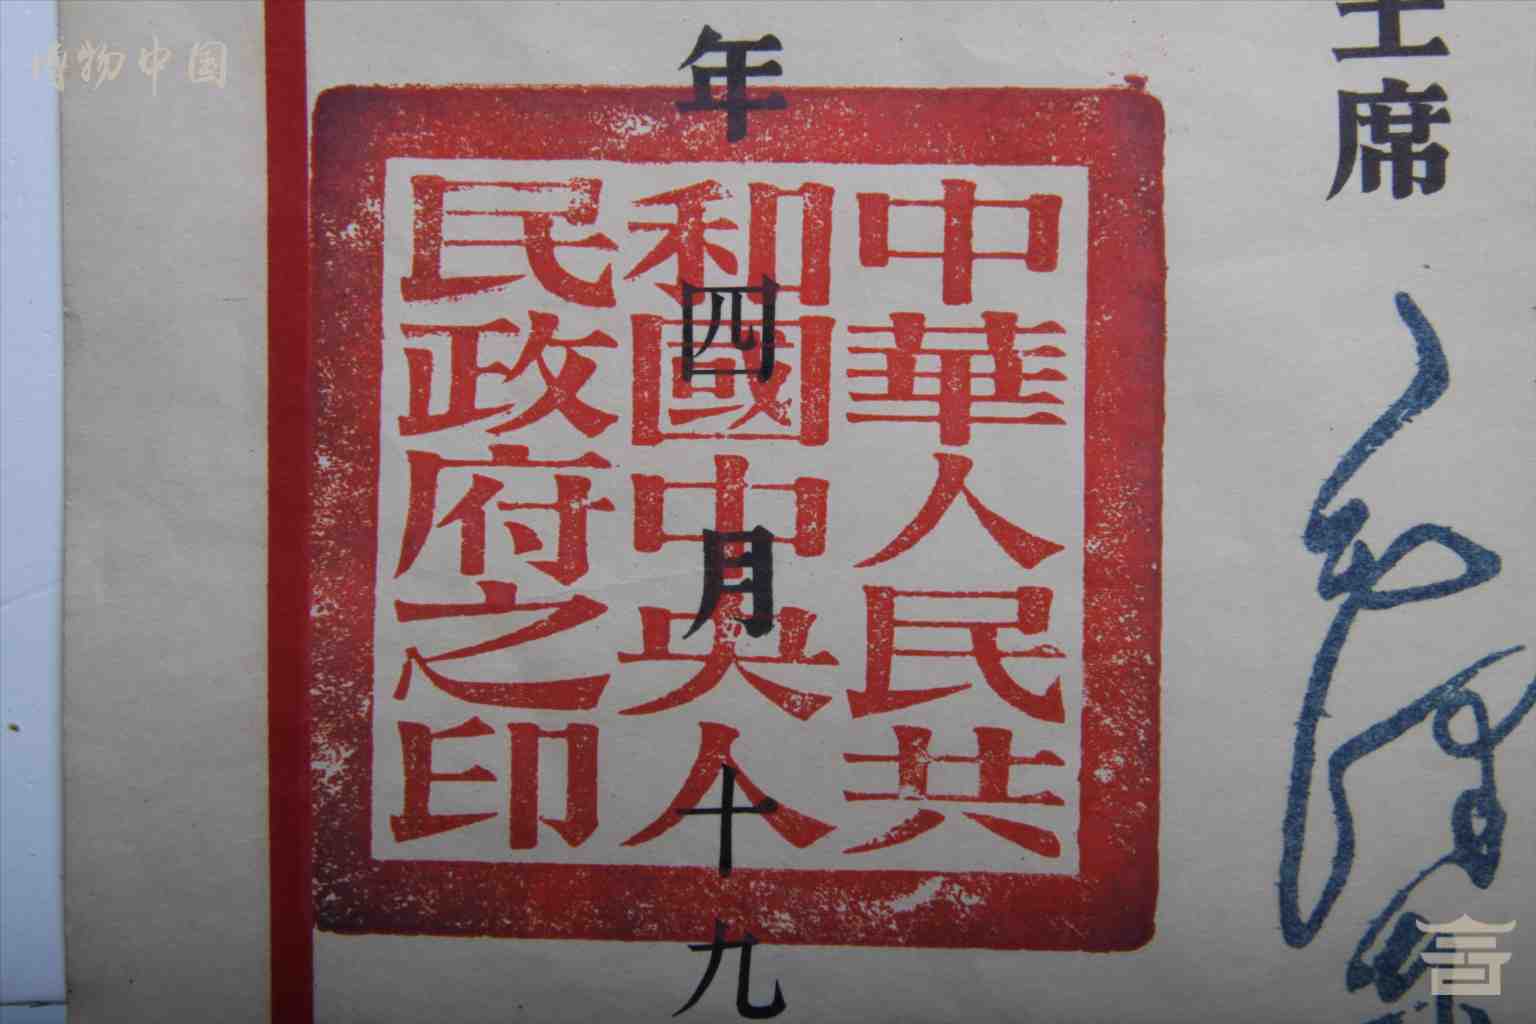 博物中国
主席
中華人民共
和國中央人
民政府之印
年四月十九